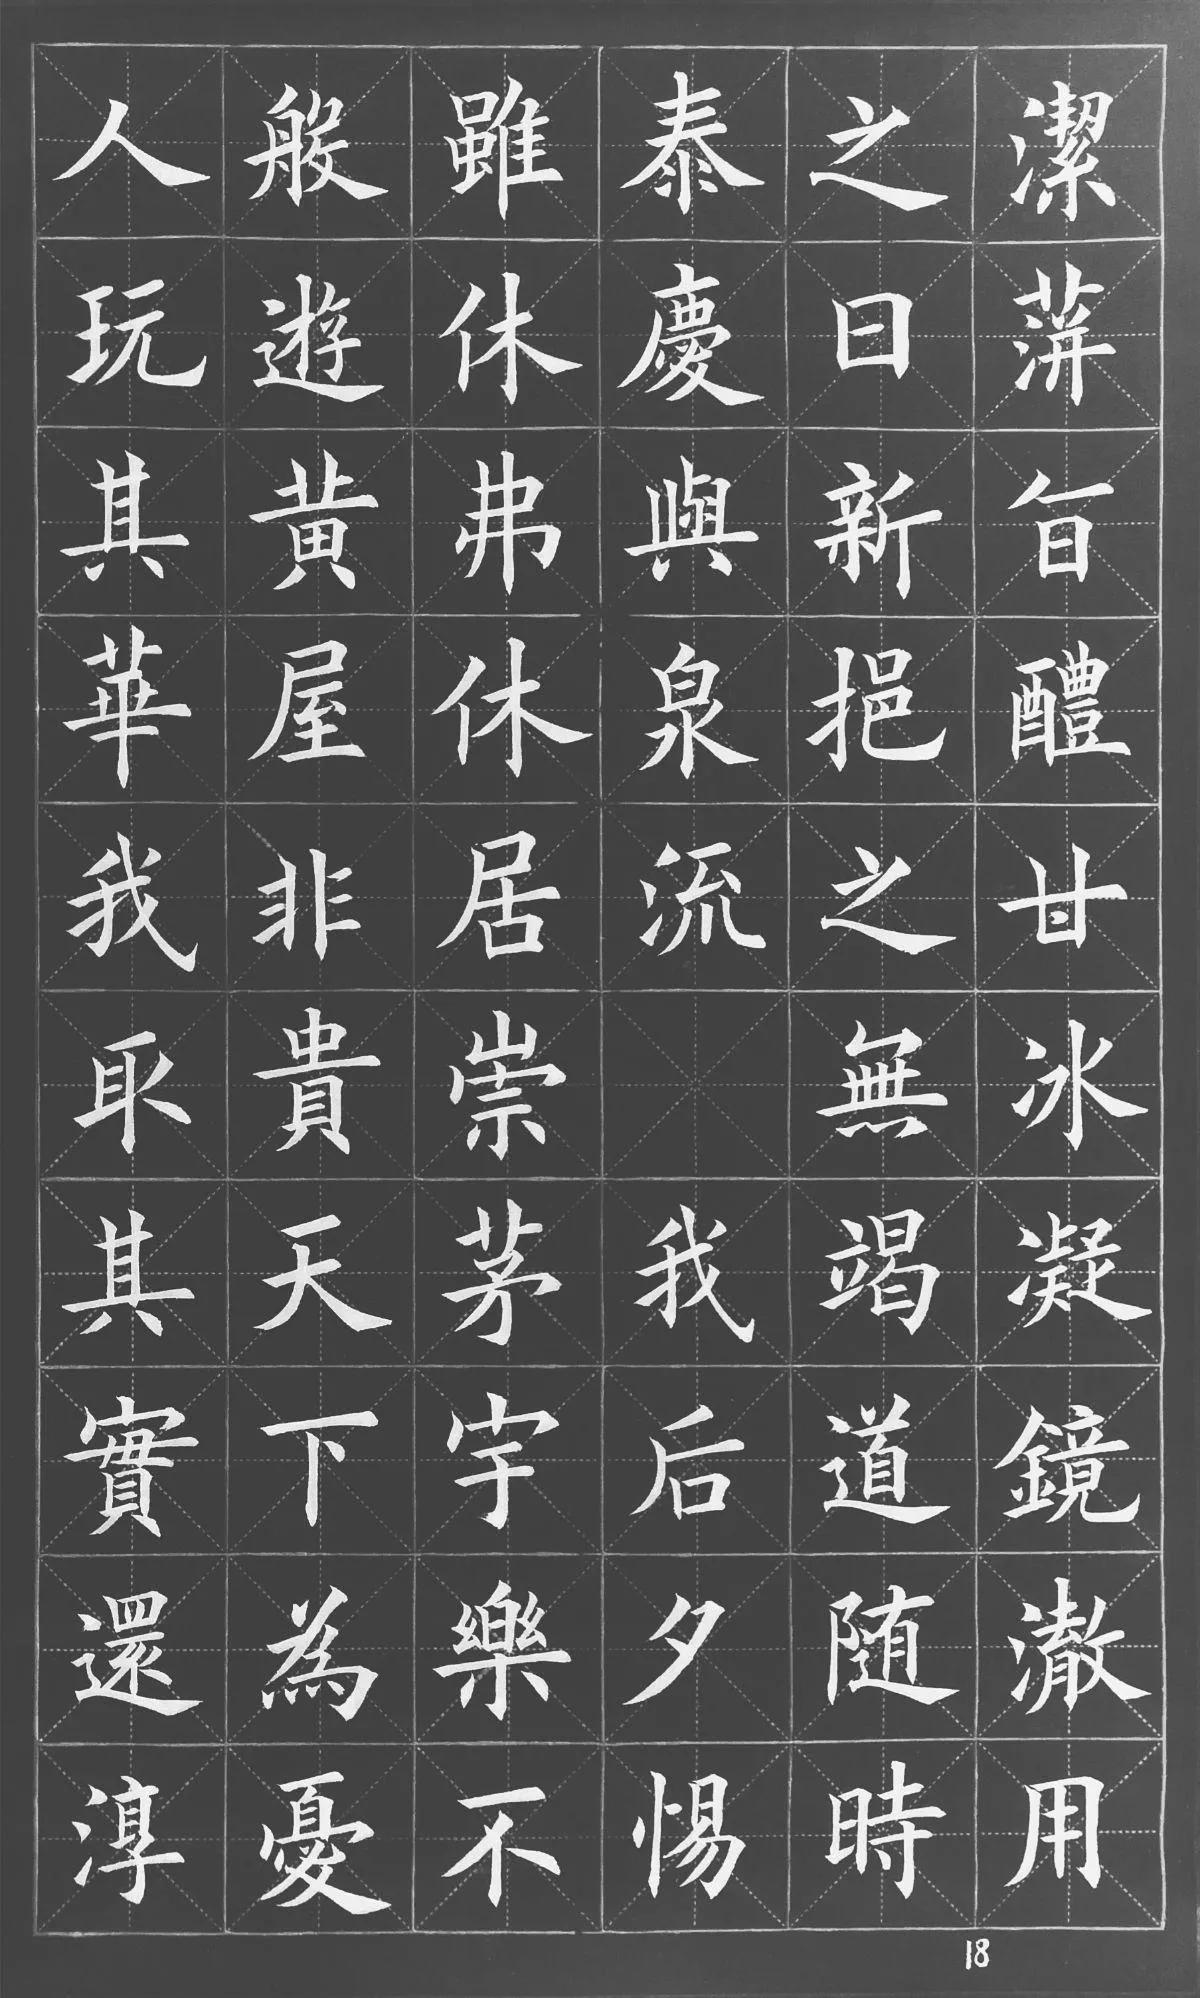 潔蓱旨醴甘冰凝鏡澈用
之日新挹之無竭道随時
泰慶與泉流我后夕惕
雖休弗休居崇茅宇樂不
般遊黄屋非貴天下為憂
人玩其華我取其實還淳
18